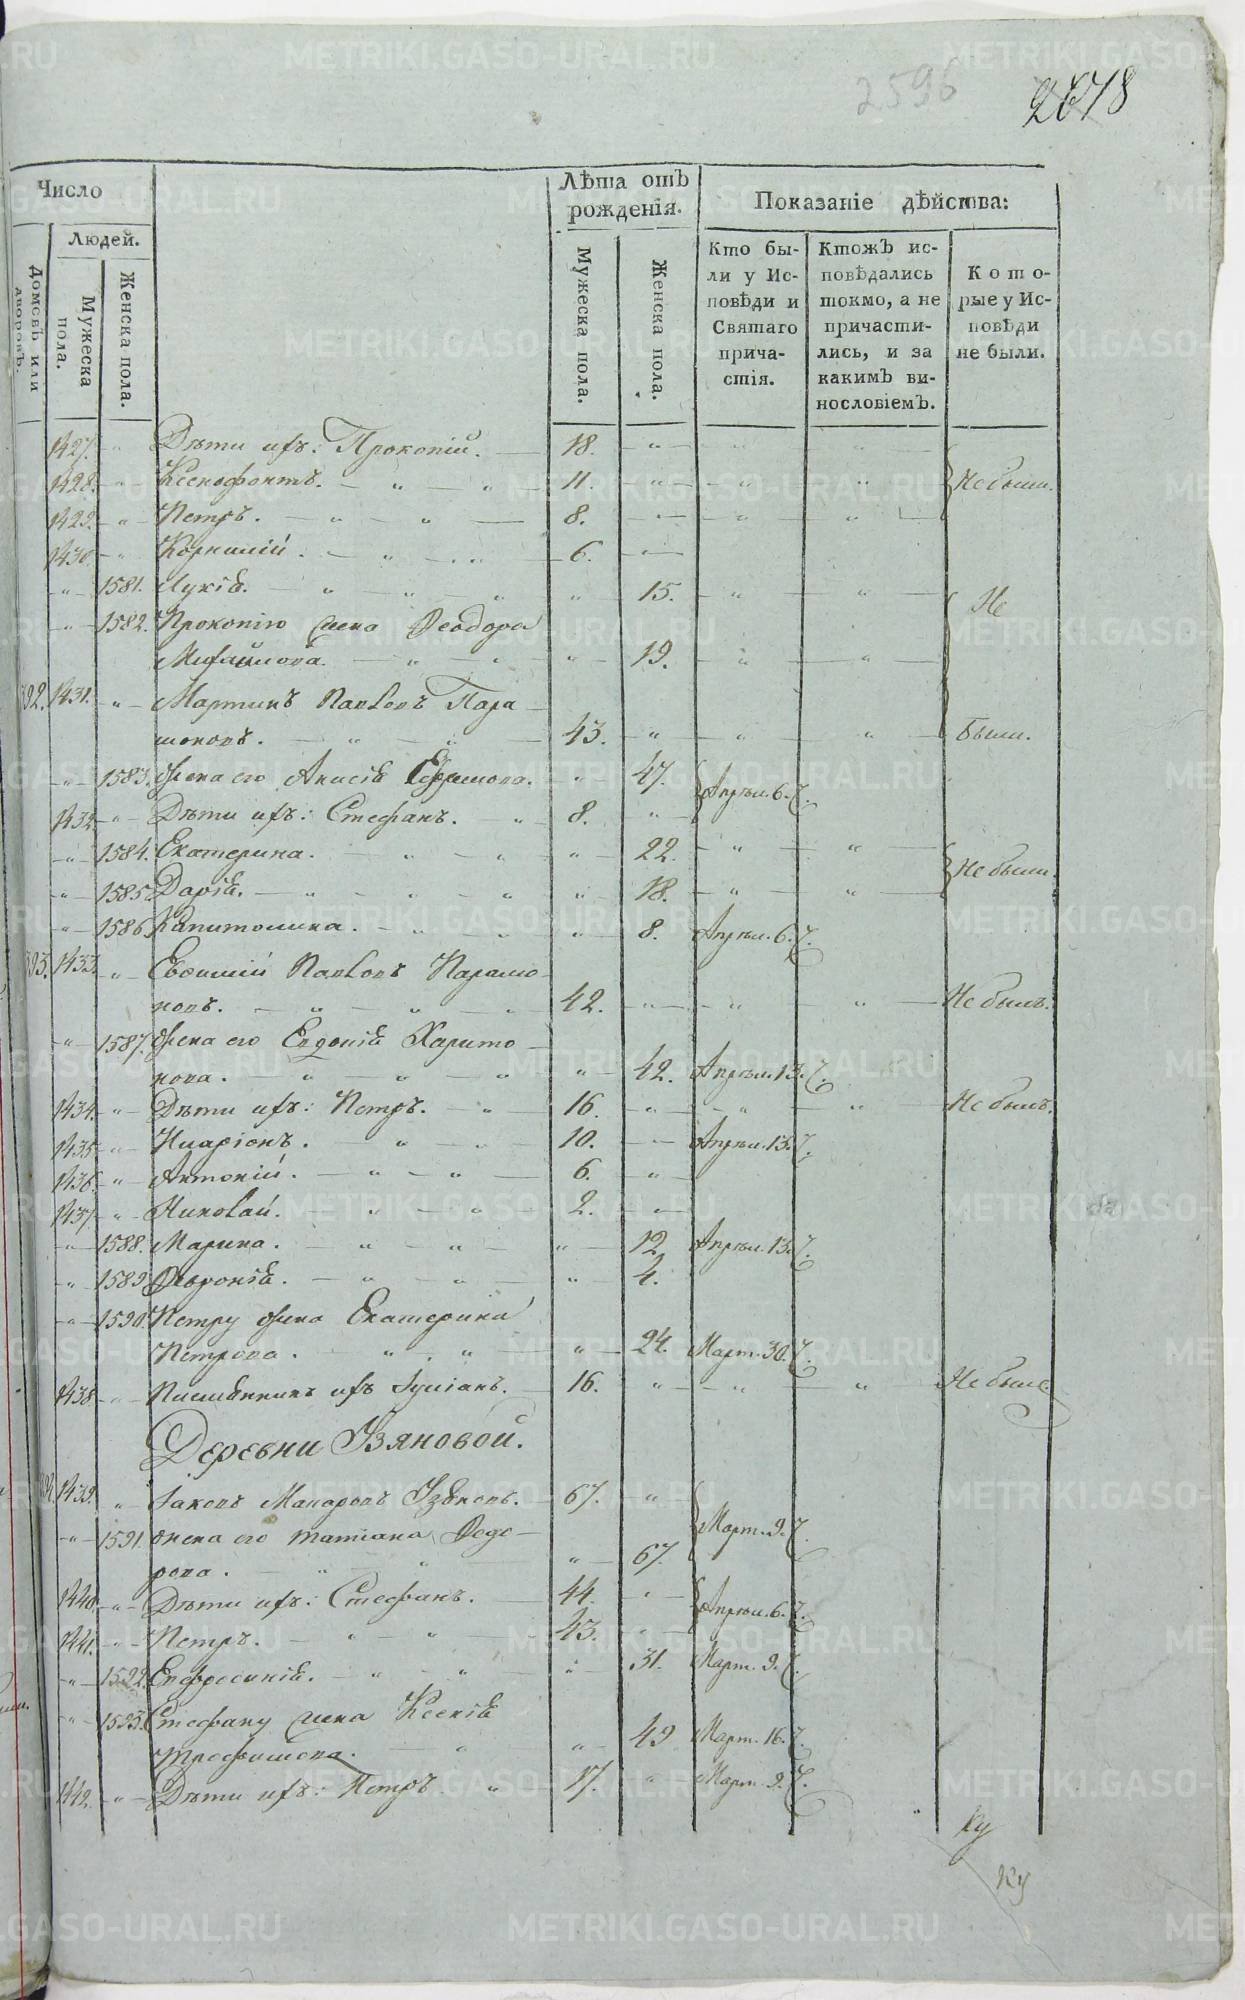 2596
2678
Число
Лѣта отъ рожденія.
Показаніе дѣйства:
Людей.
Домовъ или дворовъ.
Мужеска пола.
Женска пола.
Мужеска пола.
Женска пола.
Кто были у Исповѣди и Святаго причастія.
Ктожъ исповѣдались токмо, а не причастились, и за какимъ винословіемъ.
Которые у Исповѣди не были.
1427. Дѣти ихъ: Прокопій. 18.
1428. Ксенофонтъ. 11. Не были.
1429. Петръ. 8.
1430. Корнилій. 6.
1581. Лукія. 15. Не
1582. Прокопію жена Ѳеодора
Михайлова. 19.
392. 1431. Мартинъ Павловъ Пара
моновъ. 43. были.
1583. Жена его Анисія Ефимова. 47. Апрѣл. 6.
1432. Дѣти ихъ: Стефанъ. 8.
1584. Екатерина. 22. Не были.
1585 Дарія. 18.
1586 Капитолина. 8. Апрѣл. 6.
393. 1433. Евѳимій Павловъ Парамо
новъ. 42. Не былъ.
1587. Жена его Евдокія Харито
нова. 42. Апрѣл. 13.
1434. Дѣти ихъ: Петръ. 16. Не былъ.
1435. Иларіонъ. 10. Апрѣл. 13.
1436. Антоній. 6.
1437. Николай. 2.
1588. Марина. 12 Апрѣл. 13.
1589 Ѳевронія. 4.
1590. Петру жена Екатерина
Петрова. 24. Март. 30.
1438. Племянникъ ихъ Іуліанъ. 16. Не былъ.
Деревни Узяновой.
394. 1439. Іаковъ Макаровъ Узяновъ. 67. Март. 9.
1591. Жена его Татіана Ѳедо
рова. 67.
1440. Дѣти ихъ: Стефанъ. 44. Апрѣл. 6.
1441. Петръ. 43.
1592. Евфросинія. 31. Март. 9.
1593. Стефану жена Ксенія
Трефилова. 49 Март. 16.
1442. Дѣти ихъ: Петръ 17. Март. 9.
Ку
Ку
METRIKI.GASO-URAL.RU